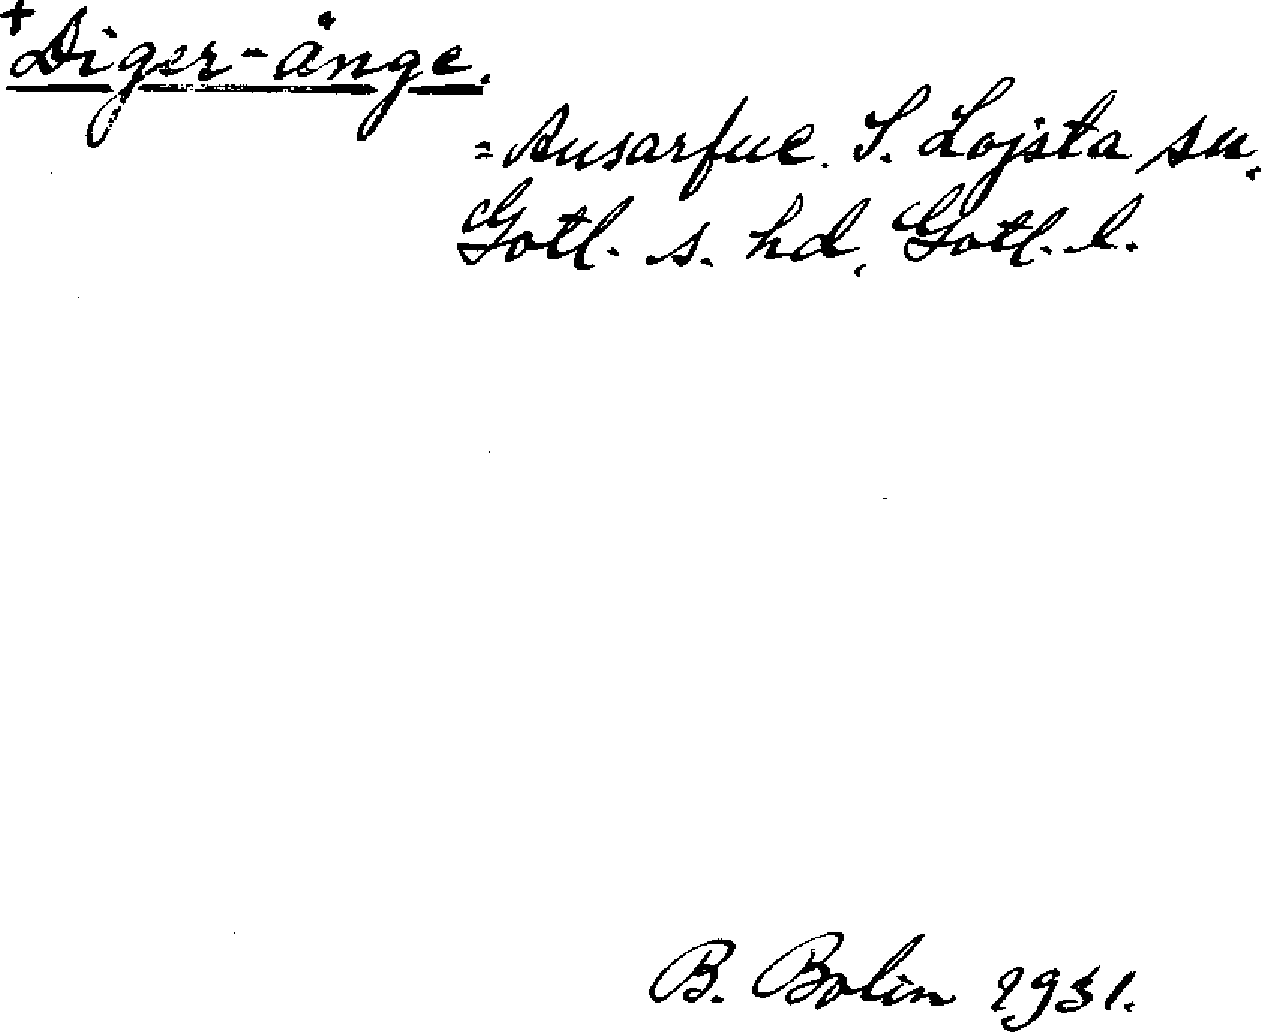 +Diger-änge.
= Ausarfve. S. Lojsta sn.
Gotl. s. hd, Gotl. l.
B. Bolin 1931.